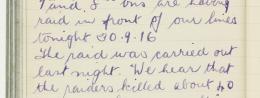 7 and 8" bns are having
raid in front of our lines
tonight 30.9.16
The raid was carried out
last night. We hear that
the raiders killed about 40